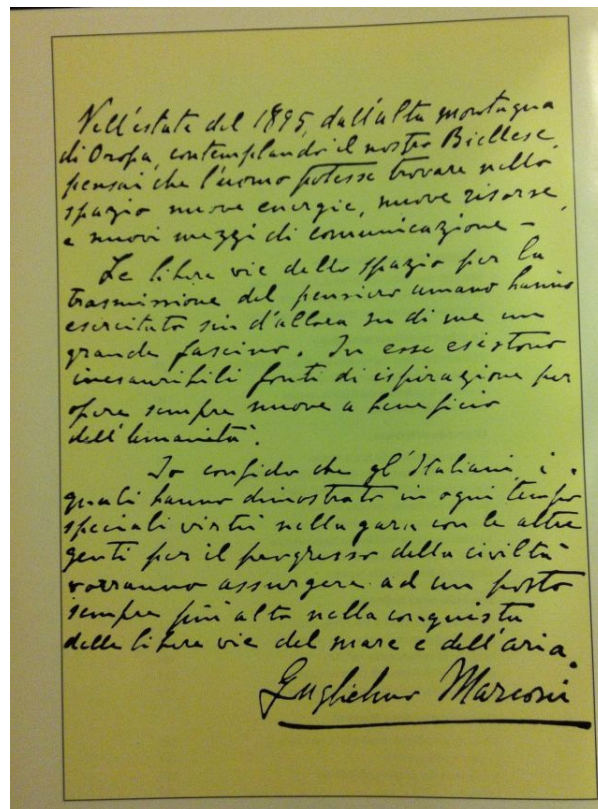 Nell'estate del 1895, dall'alta montagna
di Oropa, contemplando il nostro Biellese,
pensai che l'uomo potesse trovare nello
spazio nuove energie, nuove risorse,
e nuovi mezzi di comunicazione –
Le libere vie dello spazio per la
trasmissione del pensiero umano hanno
esercitato sin d'allora su di me un
grande fascino. In esse esistono
inesauribili fonti di ispirazione per
opere sempre nuove a beneficio
dell'Umanità.
Io confido che gl'Italiani, i
quali hanno dimostrato in ogni tempo
speciali virtù nella gara con le altre
genti per il progresso della civiltà
vorranno assurgere ad un posto
sempre più alto nella conquista
delle libere vie del mare e dell'aria.
Guglielmo Marconi